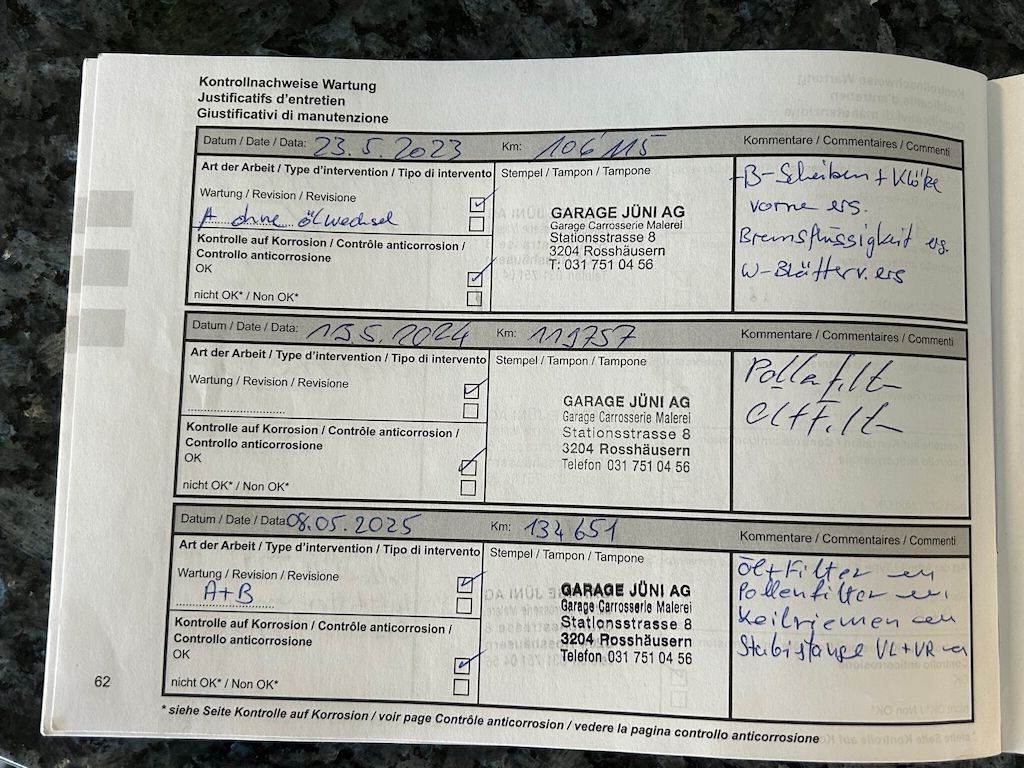 Kontrollnachweise Wartung
Justificatifs d'entretien
Giustificativi di manutenzione
Datum / Date / Data: 23.5.2023 Km: 106'115 Kommentare / Commentaires / Commenti
Art der Arbeit / Type d'intervention / Tipo di intervento
Wartung / Revision / Revisione
A ohne ölwechsel
Kontrolle auf Korrosion / Contrôle anticorrosion /
Controllo anticorrosione
OK
nicht OK* / Non OK*
Stempel / Tampon / Tampone
GARAGE JÜNI AG
Garage Carrosserie Malerei
Stationsstrasse 8
3204 Rosshäusern
T: 031 751 04 56
B-Scheiben + Klötze
vorne ers.
Bremsflüssigkeit ers.
W-Blätter v. ers
Datum / Date / Data: 13.5.2024 Km: 119757 Kommentare / Commentaires / Commenti
Art der Arbeit / Type d'intervention / Tipo di intervento
Wartung / Revision / Revisione
Kontrolle auf Korrosion / Contrôle anticorrosion /
Controllo anticorrosione
OK
nicht OK* / Non OK*
Stempel / Tampon / Tampone
GARAGE JÜNI AG
Garage Carrosserie Malerei
Stationsstrasse 8
3204 Rosshäusern
Telefon 031 751 04 56
Datum / Date / Data 08.05.2025 Km: 134651 Kommentare / Commentaires / Commenti
Art der Arbeit / Type d'intervention / Tipo di intervento
Wartung / Revision / Revisione
A+B
Kontrolle auf Korrosion / Contrôle anticorrosion /
Controllo anticorrosione
OK
nicht OK* / Non OK*
Stempel / Tampon / Tampone
GARAGE JÜNI AG
Garage Carrosserie Malerei
Stationsstrasse 8
3204 Rosshäusern
Telefon 031 751 04 56
Öl+Filter
Pollenfilter
Keilriemen
Stabistange VL+VR
62
* siehe Seite Kontrolle auf Korrosion / voir page Contrôle anticorrosion / vedere la pagina controllo anticorrosione